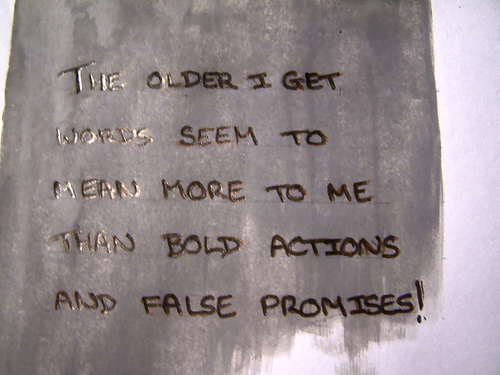 THE OLDER I GET
WORDS SEEM TO
MEAN MORE TO ME
THAN BOLD ACTIONS
AND FALSE PROMISES!